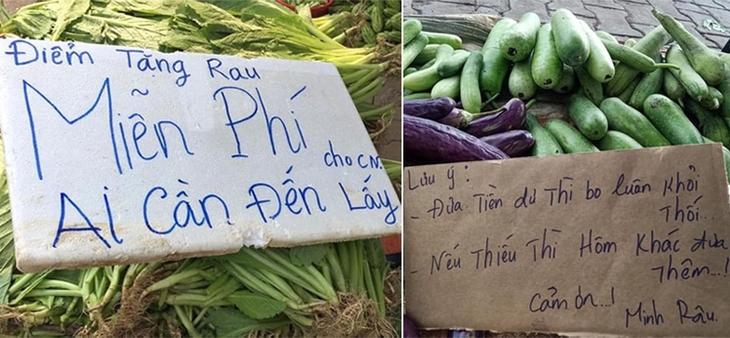 Điểm Tặng Rau
Miễn Phí
cho CN.
Ai Cần Đến Lấy
Lưu ý :
- Đưa Tiền dư Thì bo luôn Khỏi
Thối...
- Nếu Thiếu Thì Hôm Khác đưa
Thêm...!
Cảm ơn...!
Minh Râu.